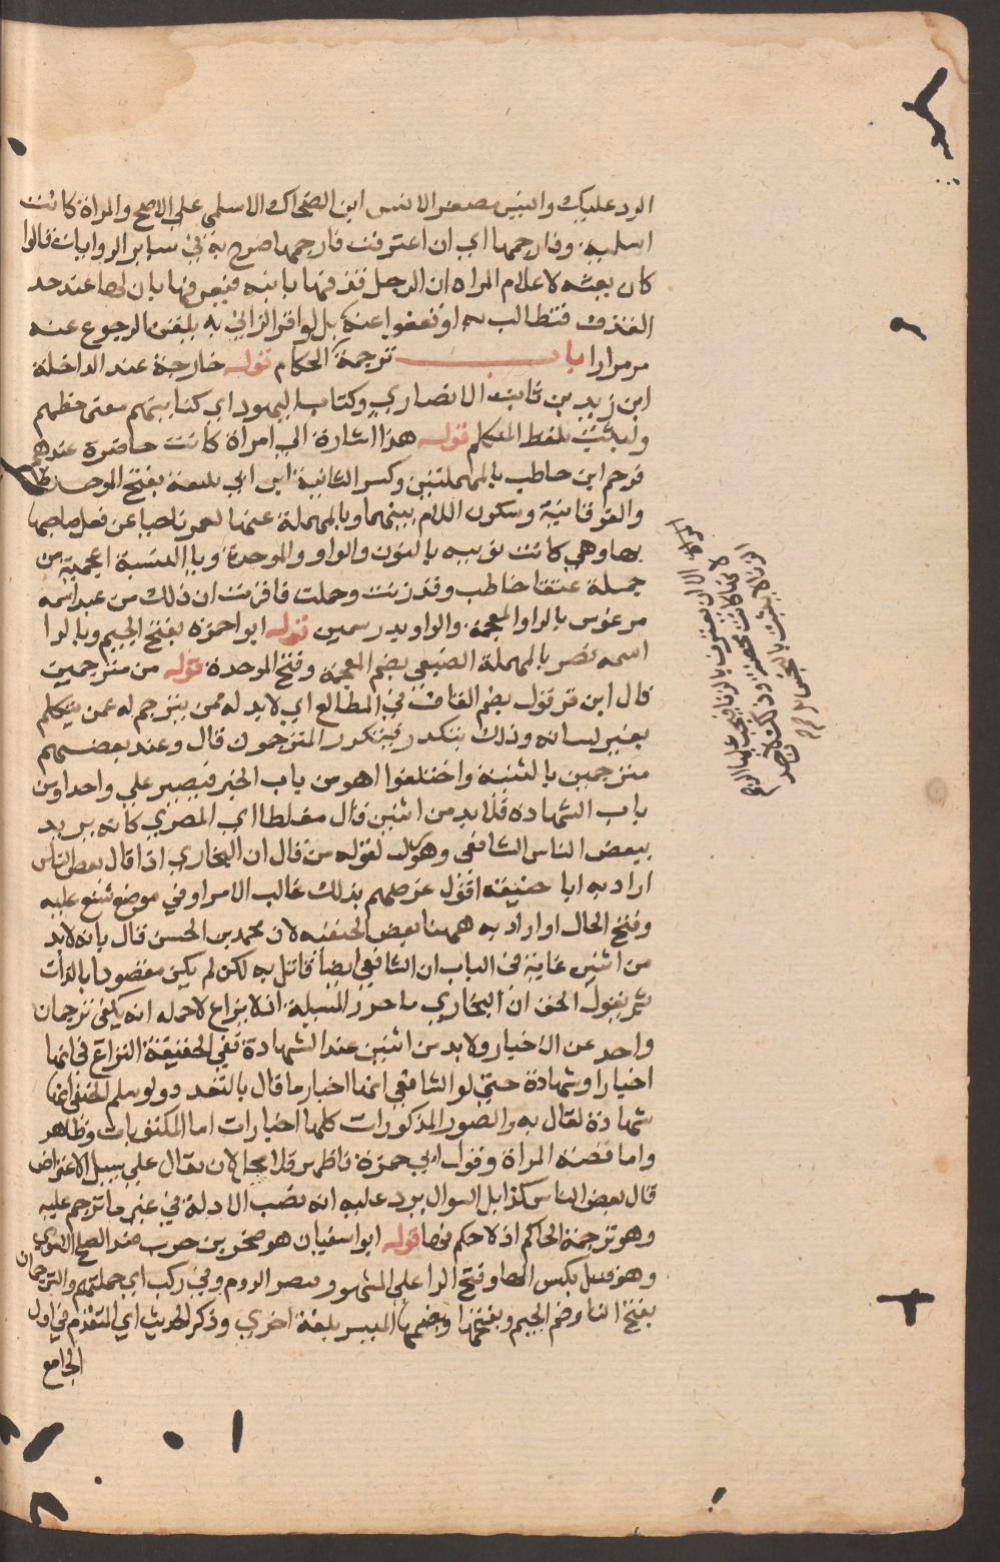 الرد عليك وانيس مصغر الانس ابن الضحاك الاسلمي على الاصح والمراة كانت
اسلمية وفارجمها اي ان اعترفت فارجمها صرح به في ساير الروايات قالوا
كان بعثه لاعلام المراه ان الرجل قذفها بابنه فيعرفها بان لها عنده حد
القذف فتطالب به او تعفوا عنه بل لو اقر الزاني به يلقن الرجوع عنه
مر مرارا باب ترجمة الحكام قوله خارجة عند الداخلة
ابن زيد بن ثابت الانصاري وكتاب اليهود اي كتابتهم معنى خطهم
بلفظ المتكلم قوله هذا اشارة الى امراة كانت حاضرة عندهم
فترجم ابن حاطب بالمهملتين وكسر الثانية ابن ابي بلتعة بفتح الموحدة
والفوقانية وسكون اللام بينهما وبالمهملة عنها لعمر ناحبا عن فعل صاحبها
بها وهي كانت نوبيه بالنون والواو والموحدة وياالنسبة اعجمية من
جملة عتقا حاطب وقد زنت وحملت فاقرت ان ذلك من عبد اسمه
مرغوس بالرا والمعجمة والواو بدرهمين قوله ابو اجمزه بفتح الجيم وبالرا
اسمه نصر بالمهملة الضبعي بضم المعجمة وفتح الموحدة قوله من مترجمين
قال ابن قرقول بضم القاف في المطالع اي لابد له ممن يترجم له عمن يتكلم
بغير لسانه وذلك يتكرر فيتكرر المترجمون قال وعند بعضهم
مترجمين بالتثنية واختلفوا اهو من باب الخبر فيصير على واحد او من
باب الشهاده فلابد من اثنين قال مغلطااي المصري كانه يريد
ببعض الناس الشافعي وهو رد لقوله من قال ان البخاري اذا قال بعض الناس
اراد به ابا حنيفه اقول غرضهم بذلك غالب الامر او في موضع شنع عليه
وقبح الحال او اراد به ههنا بعض الحنفيه لان محمد بن الحسن قال بانه لابد
من اثنين غاية في الباب ان الشافعي ايضا قائل به لكن لم يكن مقصودا بالذات
ثم نقول الحق ان البخاري ما حرر المسيلة اذ لا نزاع لاحد انه يكفي ترجمان
واحد عن الاخبار ولابد من اثنين عند الشهادة ففي الحقيقة النزاع في انها
اخبار او شهادة حتى لو الشافعي انها اخبار ما قال بالتعدد ولو سلم الحنفي انها
شهادة لقال به والصور المذكورات كلها اخبارات اما المكتوبات وظاهر
واما قصة المراة وقول ابي حمزة فاظهر فلا محل لان يقال على سبيل الاعتراض
قال بعض الناس كذا بل السوال يرد عليه انه نصب الادلة في غير ما ترجم عليه
وهو ترجمة الحاكم اذ لا حكم فيها قوله ابو اسفيان هو صخر بن حرب ضد الصلح الاموي
وهرقل بكسر الها وفتح الرا على المشهور قيصر الروم وفي ركب اي جملتهم والترجمان
بفتح التا وضم الجيم وبفتحهما وبضمها المفسر بلغة اخرى وذكر الحديث اي المتقدم في اول
الجامع